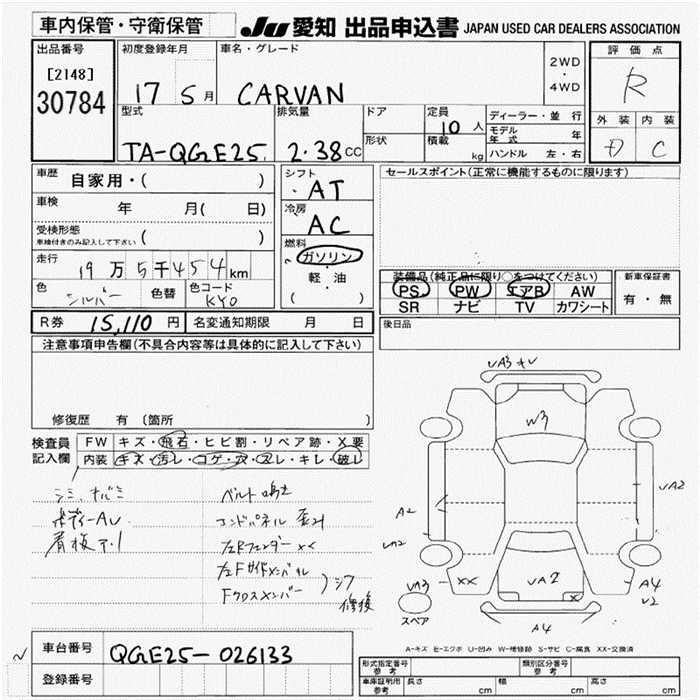 車内保管・守衛保管 JU 愛知 出品申込書 JAPAN USED CAR DEALERS ASSOCIATION
出品番号 初度登録年月 車名・グレード 2WD ・ 4WD 評価点
[2148] 17 5月 CARVAN R
30784
型式 排気量 ドア 定員 10人 ディーラー・並行 外装 内装
TA-QGE25 2.38CC 形状 積載 kg モデル年式 年 D C
ハンドル 左・右
車歴 自家用・( ) シフト AT セールスポイント(正常に機能するものに限ります)
車検 年 月( 日) 冷房 AC
受検形態 ( )
車検付きのみ記入して下さい
燃料 ガソリン・軽・油 ( )
走行 19万5千454km
色 シルバー 色替 色コード KY0
装備品(純正品に限り○をつけてください) 新車保証書
PS PW エアB AW 有・無
SR ナビ TV カワシート
R券 15,110円 名変通知期限 月 日 後日品
注意事項申告欄(不具合内容等は具体的に記入して下さい)
修復歴 有 (箇所 )
検査員記入欄 FW キズ・飛石・ヒビ割・リペア跡・X要
内装 キズ・汚レ・コゲ・穴・スレ・キレ・破レ
ベルト鳴き
ボディーAU
コンドパネル
左Rフェンダー××
左Fサイドメンバー
Fクロスメンバー
修復
VA3
W3
A2
VA2
VA2
VA3 ××
VA2
×
A4
V2
A4
スペア
A-キズ E-エクボ U-凹み W-補修跡 S-サビ C-腐食 XX-交換済
車台番号 QGE25-026133
登録番号
形式指定番号 参考 類別区分番号 参考
車庫証明用 参考 長さ cm 幅 cm 高さ cm